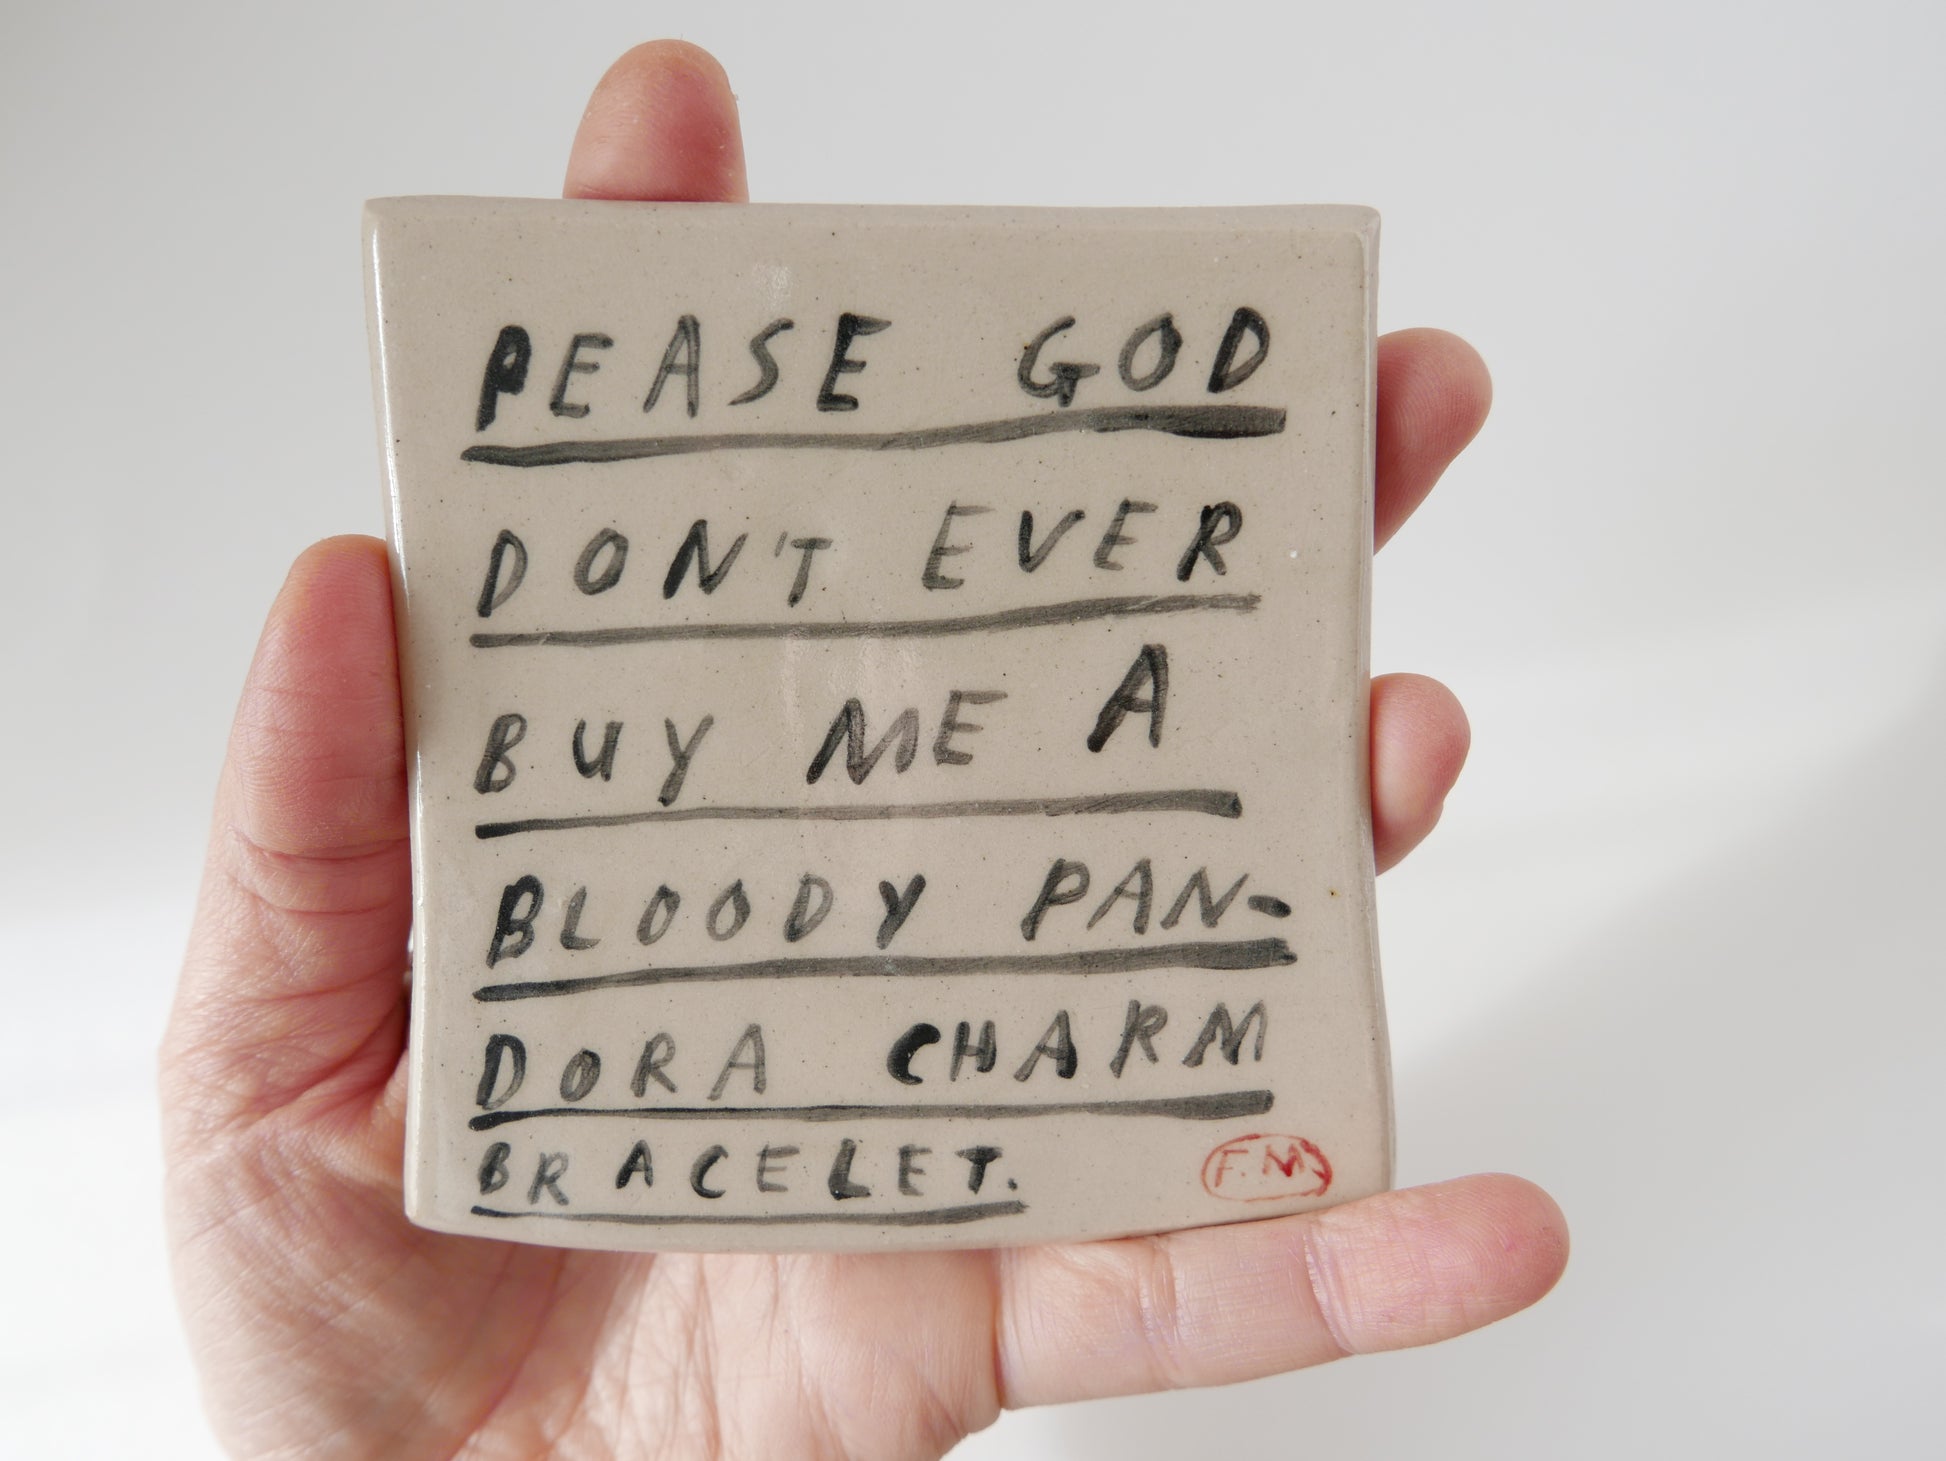 PEASE GOD
DON'T EVER
BUY ME A
BLOODY PAN-
DORA CHARM
BRACELET.
F.M.